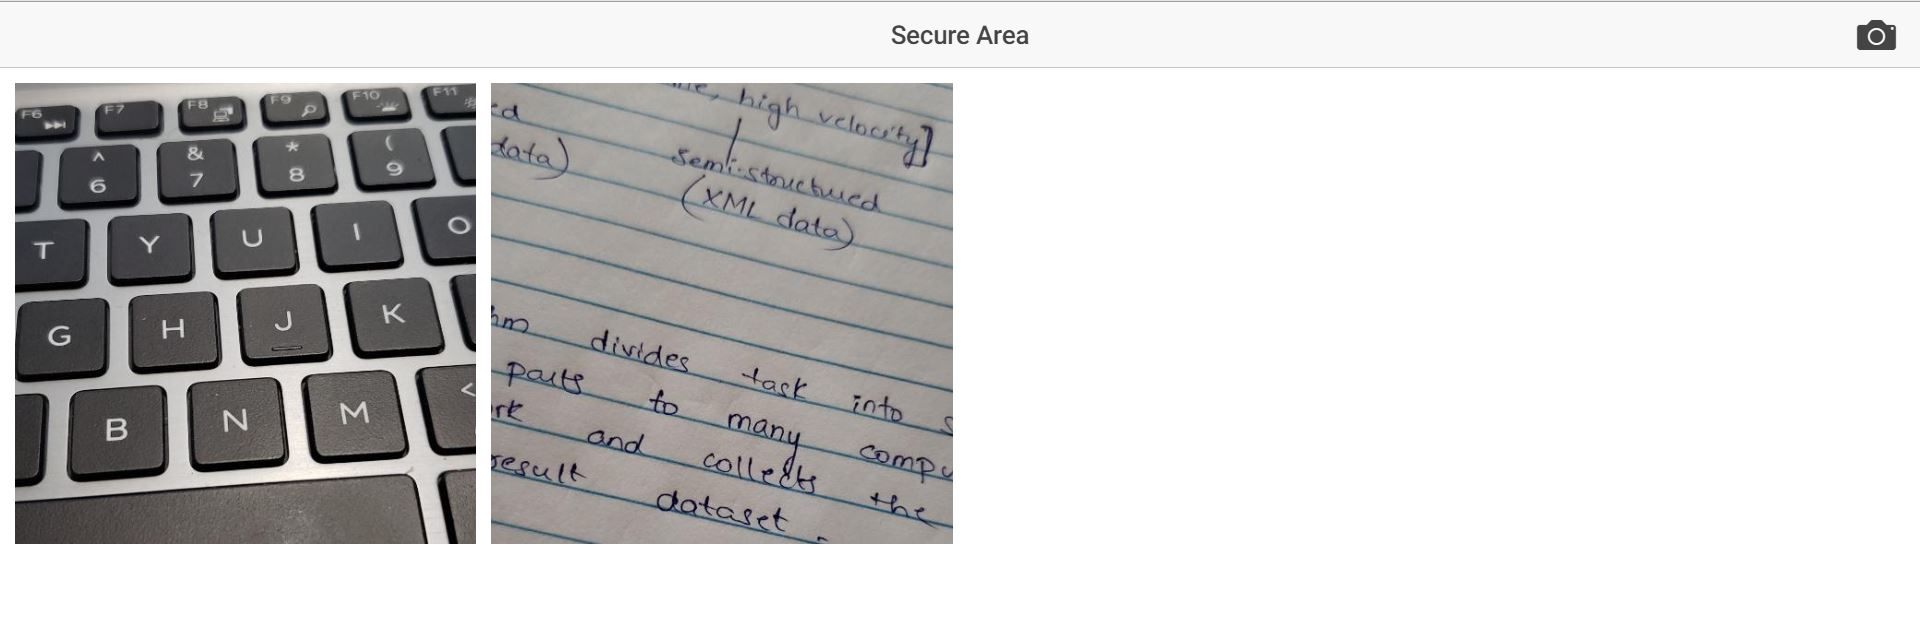 Secure Area
F6 F7 F8 F9 F10 F11
^ & * (
6 7 8 9
T Y U I O
G H J K
B N M <
high velocity]
data)
semi-structured
(XML data)
divides task into
parts to many
and collects the
result dataset